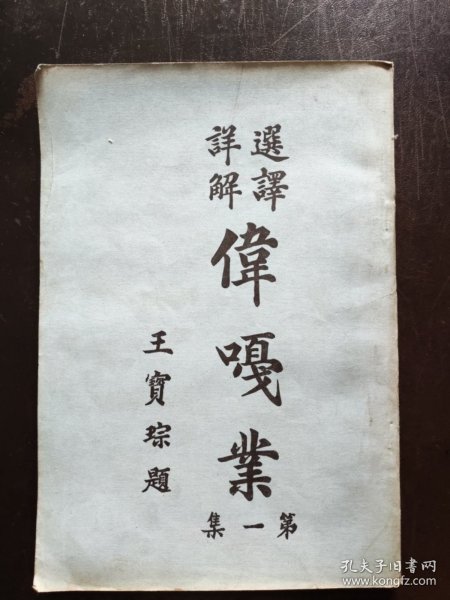 選譯
詳解
偉嘎業
第一集
王寶琮題
孔夫子旧书网
www.kongfz.com